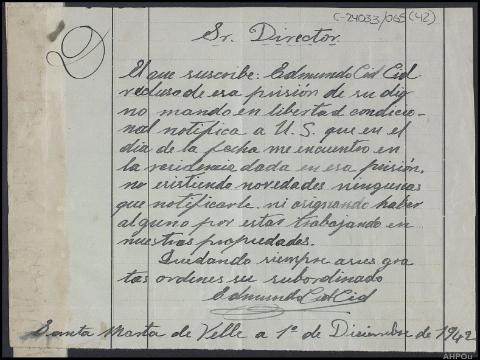 C-24033/065 (42)
Sr. Director.
El que suscribe: Edmundo Cid Cid
recluso de esa prisión de su dig
no mando en libertad condicio-
nal notifica a U.S. que en el
dia de la fecha me encuentro en
la residencia dada en esa prisión,
no existiendo novedades ningunas
que notificarle. ni asignando haber
alguno por estar trabajando en
nuestras propiedades.
Quedando siempre a sus gra
tas ordenes su subordinado
Edmundo Cid Cid
Santa Marta de Velle a 1º de Diciembre de 1942
AHPOu